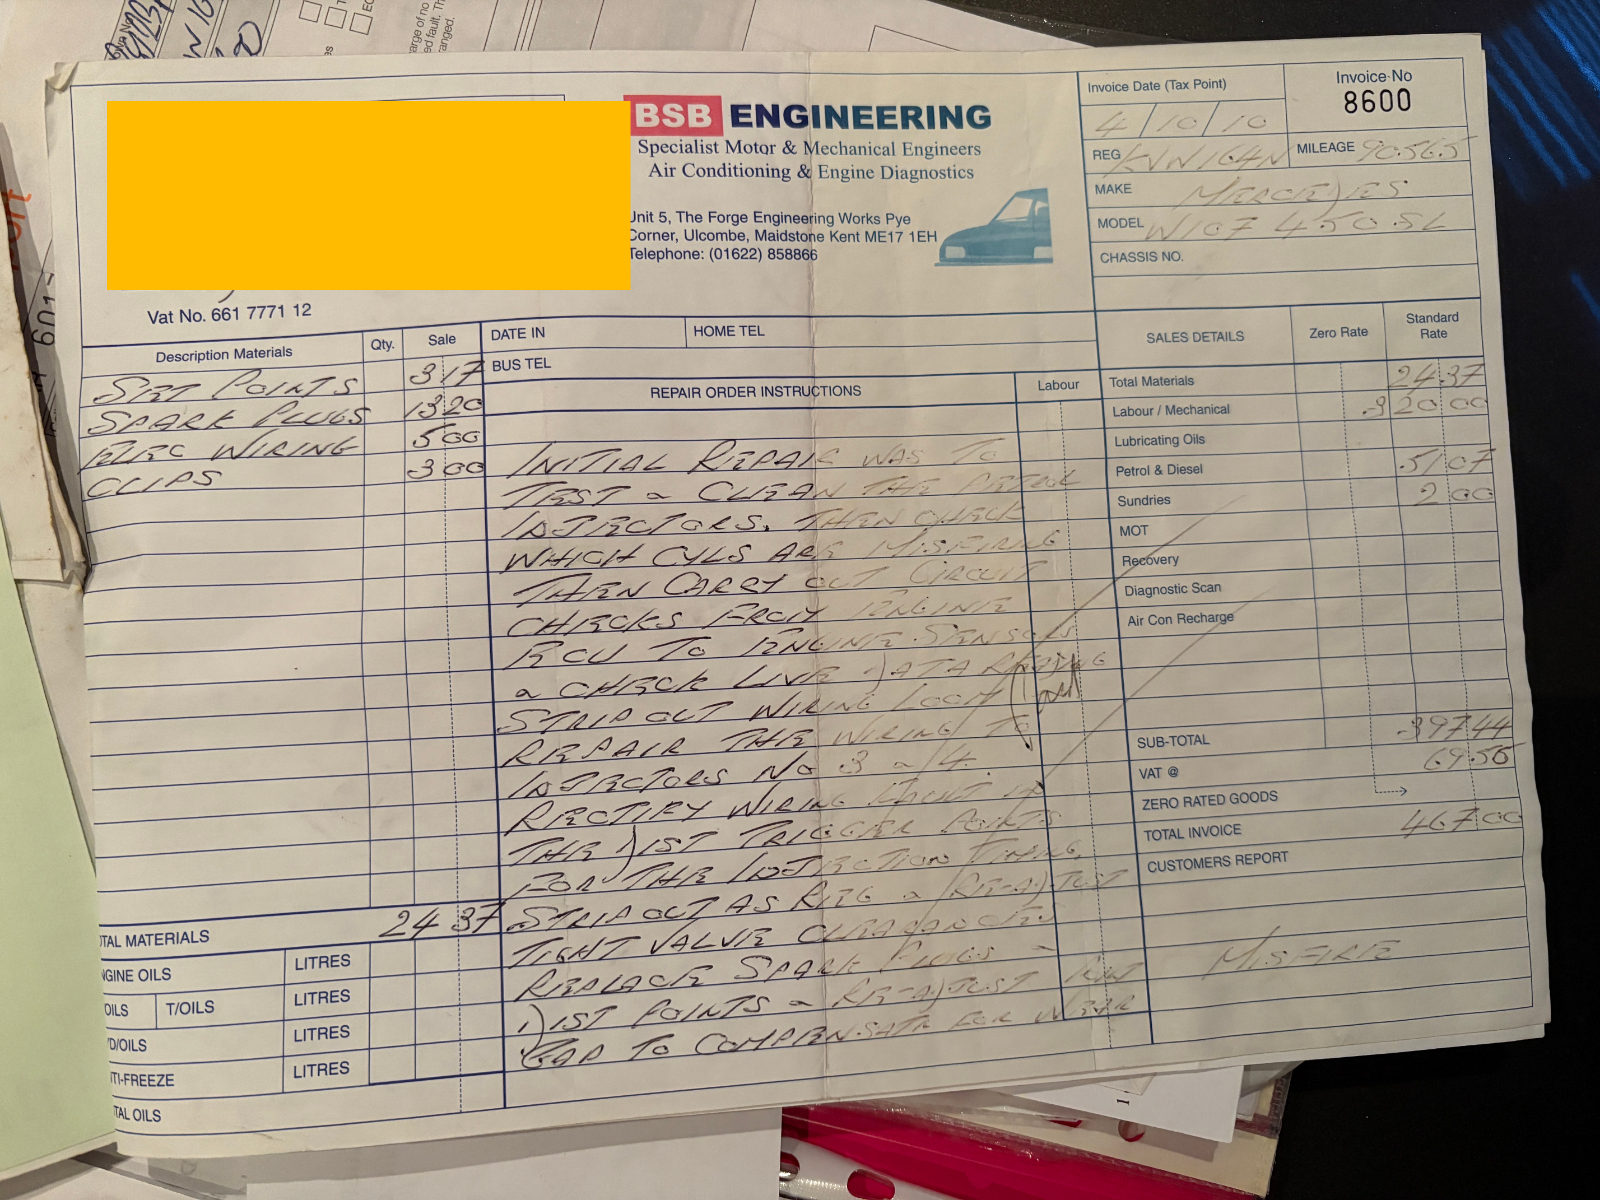 BSB ENGINEERING
Specialist Motor & Mechanical Engineers
Air Conditioning & Engine Diagnostics
Unit 5, The Forge Engineering Works Pye
Corner, Ulcombe, Maidstone Kent ME17 1EH
Telephone: (01622) 858866
Vat No. 661 7771 12
Invoice Date (Tax Point)
4/10/10
Invoice No
8600
REG KVW164N
MILEAGE 90.565
MAKE MERCEDES
MODEL W107 450.SL
CHASSIS NO.
Description Materials Qty. Sale
SET POINTS 3 17
SPARK PLUGS 13 20
ELEC WIRING 5 00
CLIPS 3 00
TOTAL MATERIALS 24 37
ENGINE OILS LITRES
OILS T/OILS LITRES
D/OILS LITRES
ANTI-FREEZE LITRES
TOTAL OILS
DATE IN HOME TEL
BUS TEL
REPAIR ORDER INSTRUCTIONS Labour
INITIAL REPAIR WAS TO
TEST & CLEAN THE PETROL
INJECTORS. THEN CHECK
WHICH CYLS ARE MISFIRING
THEN CARRY OUT CIRCUIT
CHECKS FROM ENGINE
ECU TO ENGINE SENSORS
& CHECK LIVE DATA READING
STRIP OUT WIRING LOOM
REPAIR THE WIRING TO
INJECTORS No 3 & 4.
RECTIFY WIRING FAULT IN
THE DIST TRIGGER POINTS
FOR THE INJECTION TIMING.
STRIP OUT AS REQ & RE-ADJUST
TIGHT VALVE CLEARANCES
REPLACE SPARK PLUGS &
DIST POINTS & RE-ADJUST
GAP TO COMPENSATE FOR WEAR
SALES DETAILS Zero Rate Standard Rate
Total Materials 24 37
Labour / Mechanical 320 00
Lubricating Oils
Petrol & Diesel 51 07
Sundries 2 00
MOT
Recovery
Diagnostic Scan
Air Con Recharge
SUB-TOTAL 397 44
VAT @ 69.56
ZERO RATED GOODS
TOTAL INVOICE 467 00
CUSTOMERS REPORT
MISFIRE